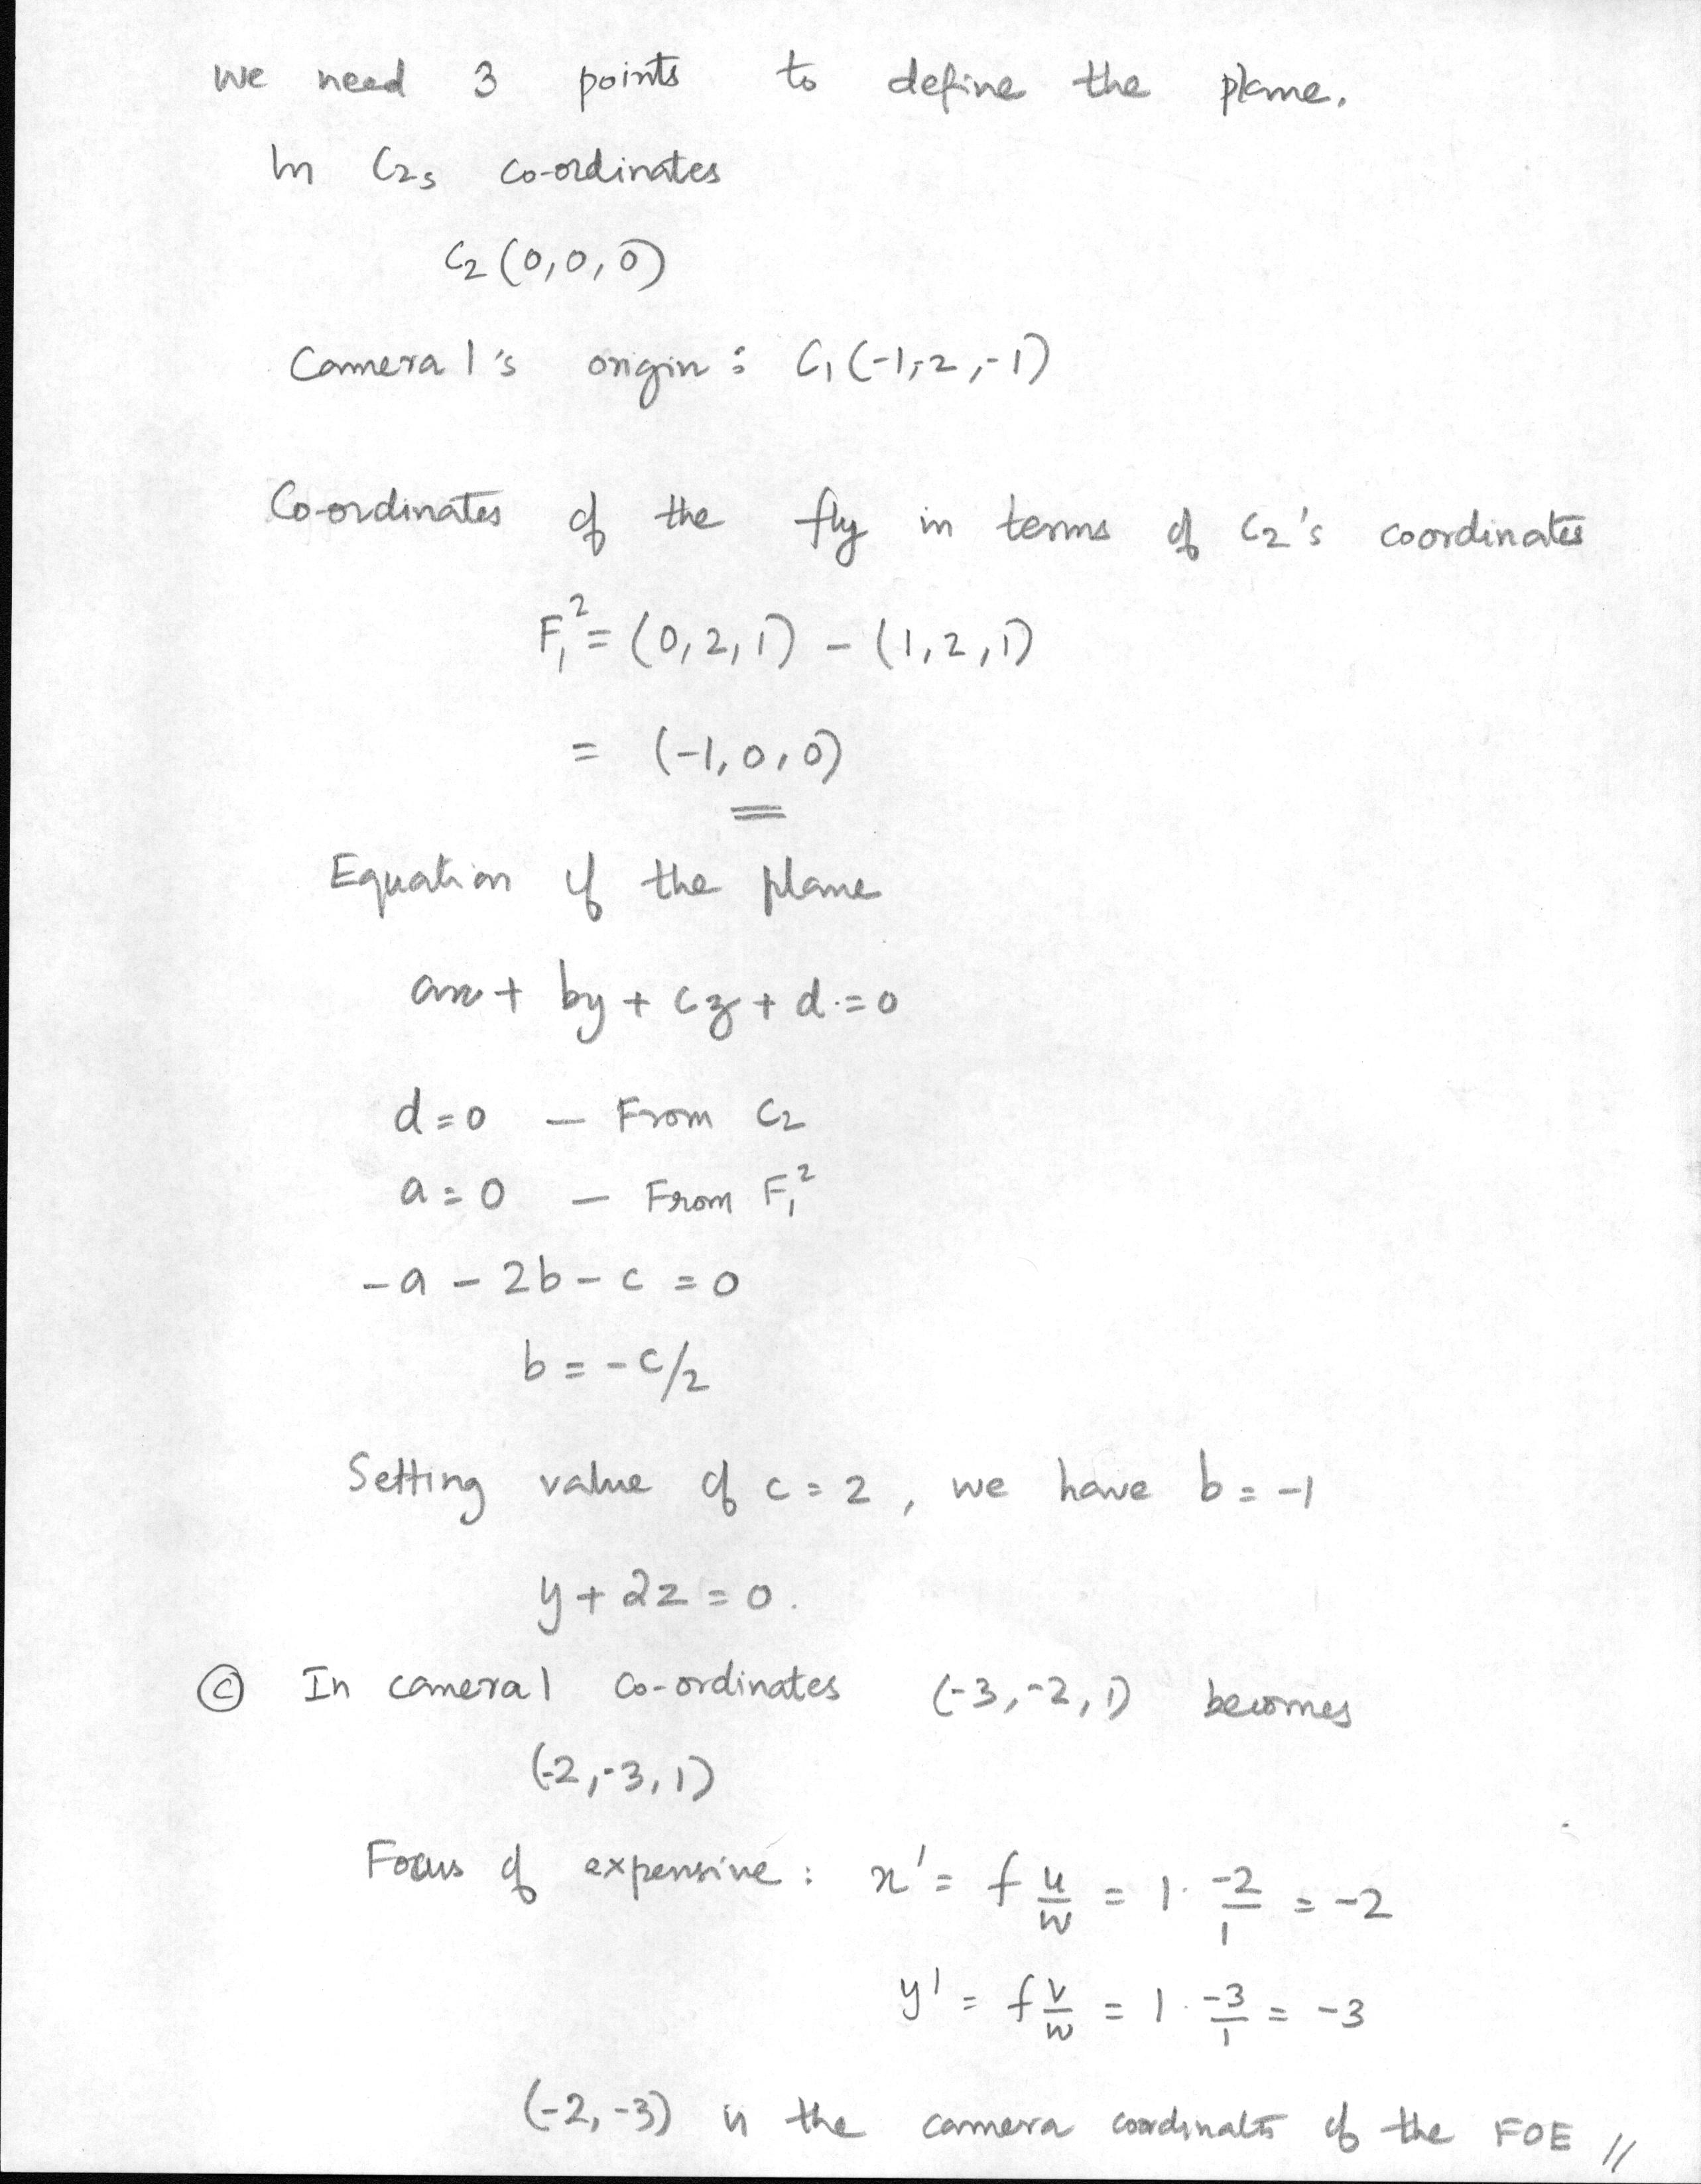 we need 3 points to define the plane.
In C2s co-ordinates
C2 (0,0,0)
Camera 1's origin : C1 (-1,-2,-1)
Co-ordinates of the fly in terms of C2's coordinates
F₁² = (0,2,1) - (1,2,1)
= (-1,0,0)
Equation of the plane
ax + by + cz + d = 0
d = 0 - From C2
a = 0 - From F₁²
-a - 2b - c = 0
b = -c/2
Setting value of c = 2, we have b = -1
y + 2z = 0.
(c) In camera 1 co-ordinates (-3,-2,1) becomes
(-2,-3,1)
Focus of expensive : x' = f u/w = 1. -2/1 = -2
y' = f v/w = 1. -3/1 = -3
(-2,-3) is the camera coordinates of the FOE //